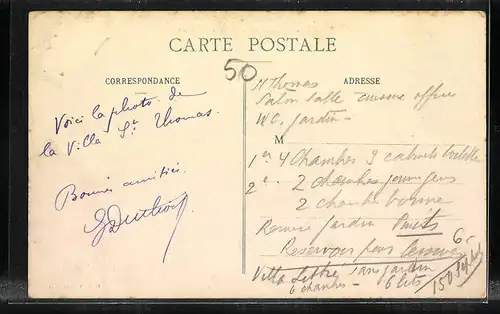 CARTE POSTALE
50
CORRESPONDANCE
ADRESSE
Voici la photo de
la Villa St Thomas.
Bonnes amitiés
St Thomas
Salon Salle cuisine office
W.C. Jardin -
M
1er 4 Chambres 3 cabinets toilette
2e 2 chambres
2 chambres bonne
Remise jardin Puits
Reservoir pour
6-
Villa sans jardin
6 chambres - 6 lits
150